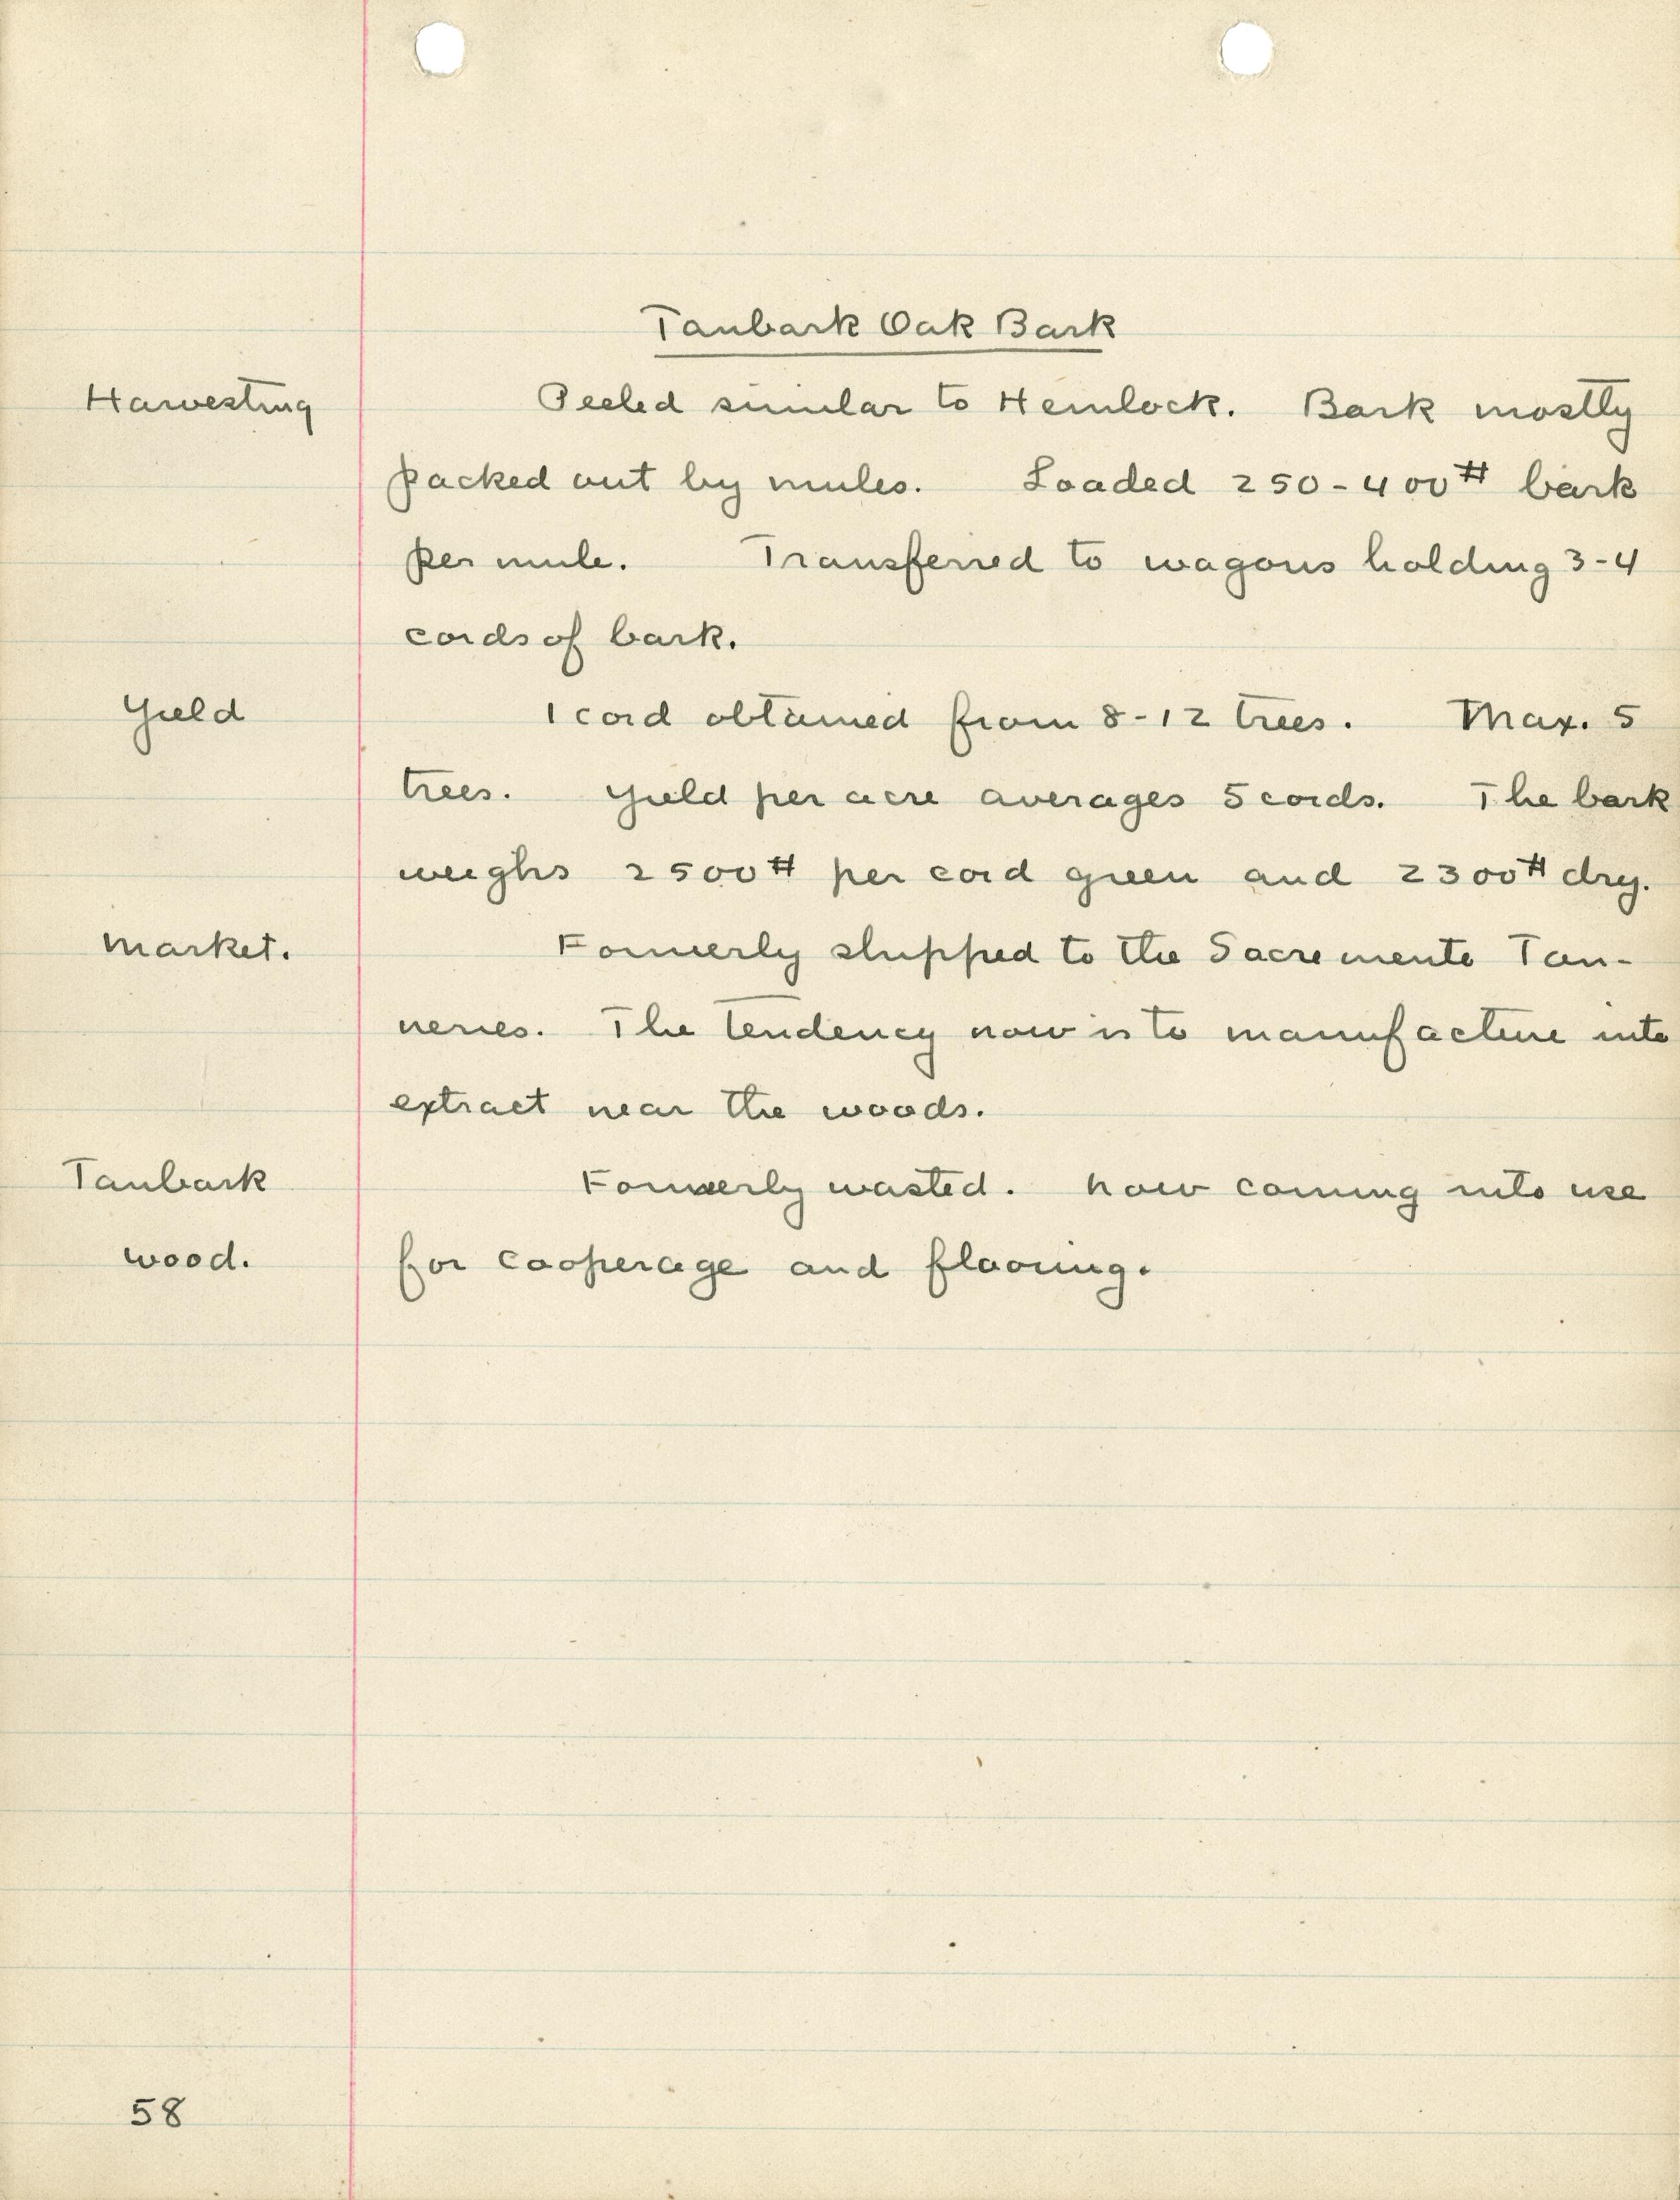 Tanbark Oak Bark
Harvesting Peeled similar to Hemlock. Bark mostly
packed out by mules. Loaded 250-400# bark
per mule. Transferred to wagons holding 3-4
cords of bark.
Yield 1 cord obtained from 8-12 trees. Max. 5
trees. Yield per acre averages 5 cords. The bark
weighs 2500# per cord green and 2300# dry.
Market. Formerly shipped to the Sacremento Tan-
neries. The tendency now is to manufacture into
extract near the woods.
Tanbark Formerly wasted. Now coming into use
wood. for cooperage and flooring.
58